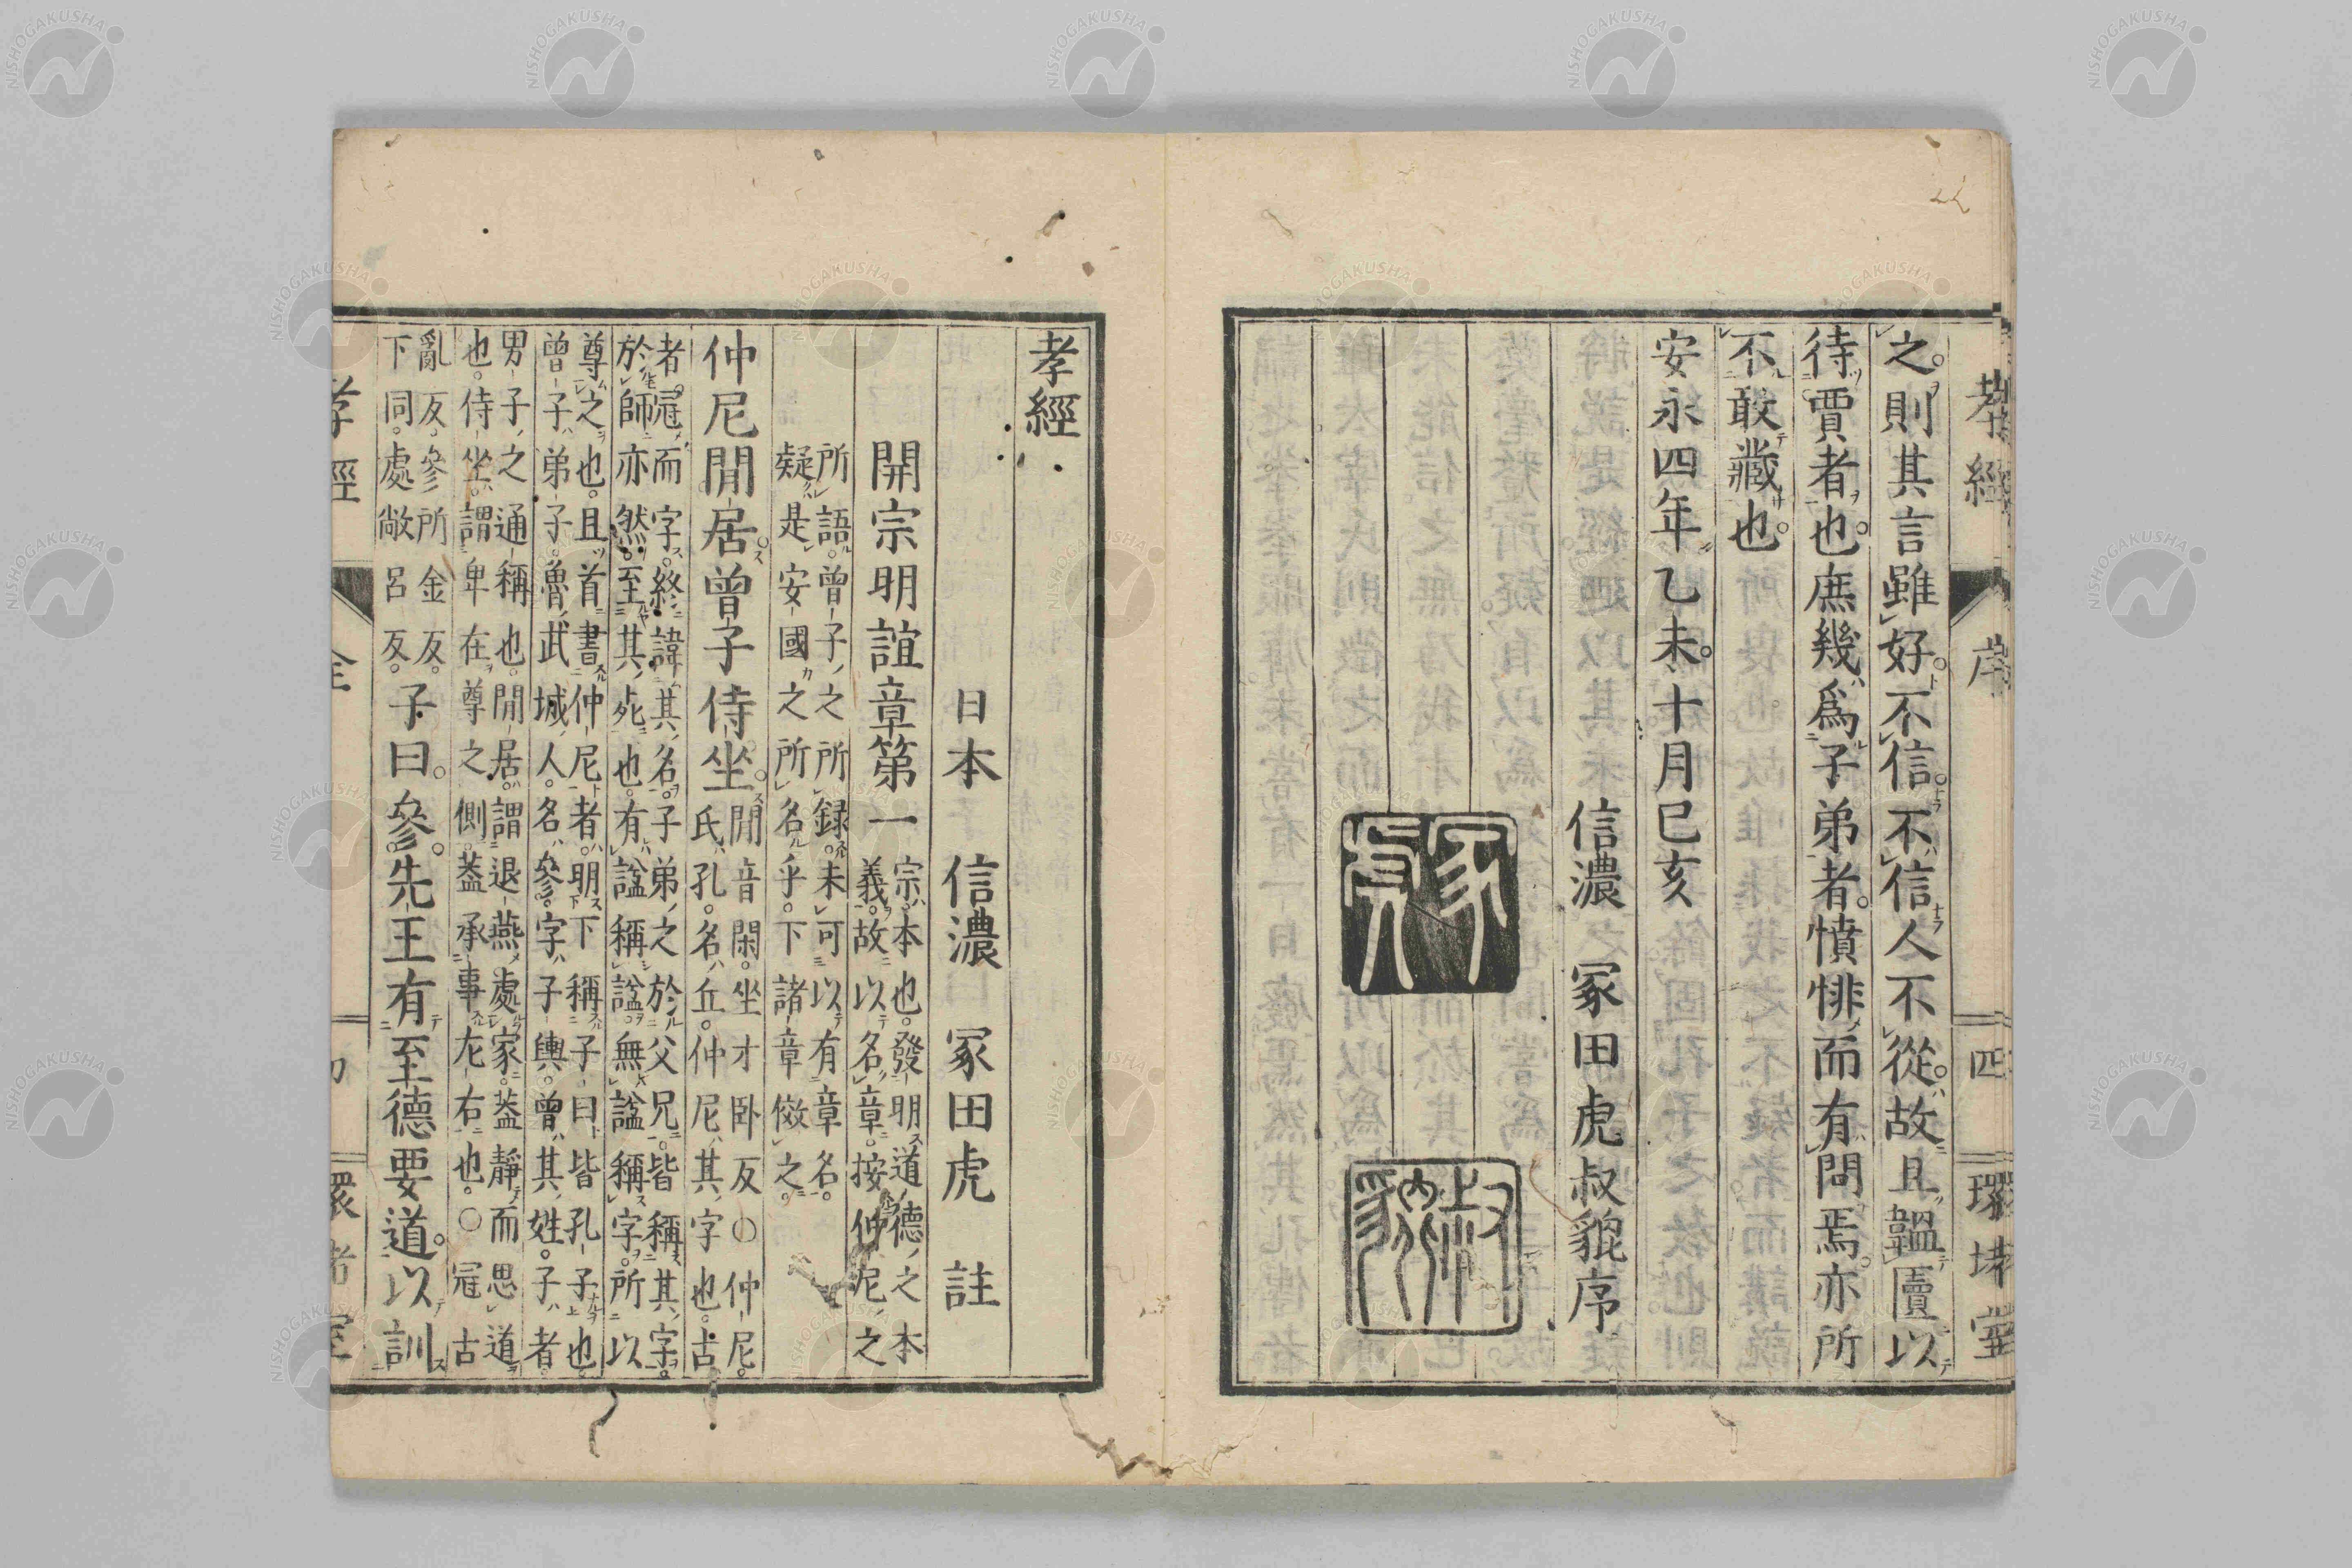 孝經
序
四
環堵室
之則其言雖好不信不信人不從故且韞匵以
待賈者也庶幾爲子弟者憤悱而有問焉亦所
不敢藏也
安永四年乙未十月己亥
信濃 冢田虎叔貔序
冢虎
叔貔
孝經
日本 信濃 冢田虎 註
開宗明誼章第一 宗本也發明道德之本
義故以名章按仲尼之
所語曾子之所録未可以有章名
疑是安國之所名乎下諸章傚之
仲尼閒居曾子侍坐 閒音閑坐才卧反○仲尼
氏孔名丘仲尼其字也古
者冠而字終諱其名子弟之於父兄皆稱其字
於師亦然至其死也有諡稱諡無諡稱字所以
尊之也且首書仲尼者明下稱子曰皆孔子也
曾子弟子魯武城人名參字子輿曾其姓子者
男子之通稱也閒居謂退燕處家蓋靜而思道
也侍坐謂卑在尊之側蓋承事左右也○冠古
亂反參所金反
下同處敞呂反
子曰參先王有至德要道以訓
孝經
全
環堵室
NISHOGAKUSHA